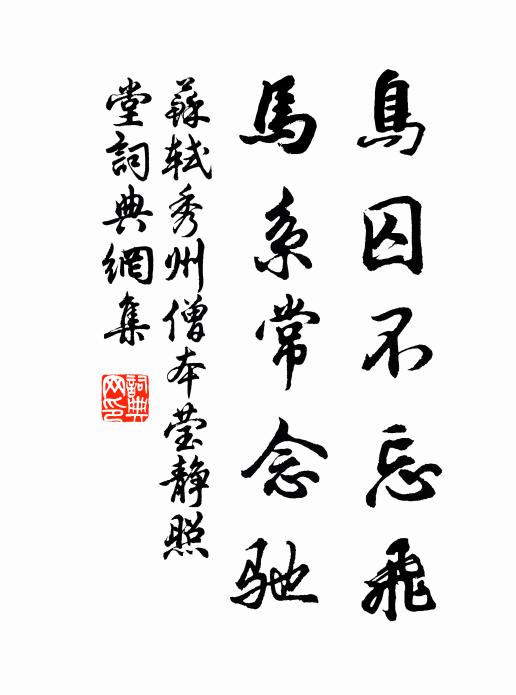 鳥囚不忘飛
馬系常念馳
蘇軾秀州僧本莹静照
堂詞典網集
詞典
网印